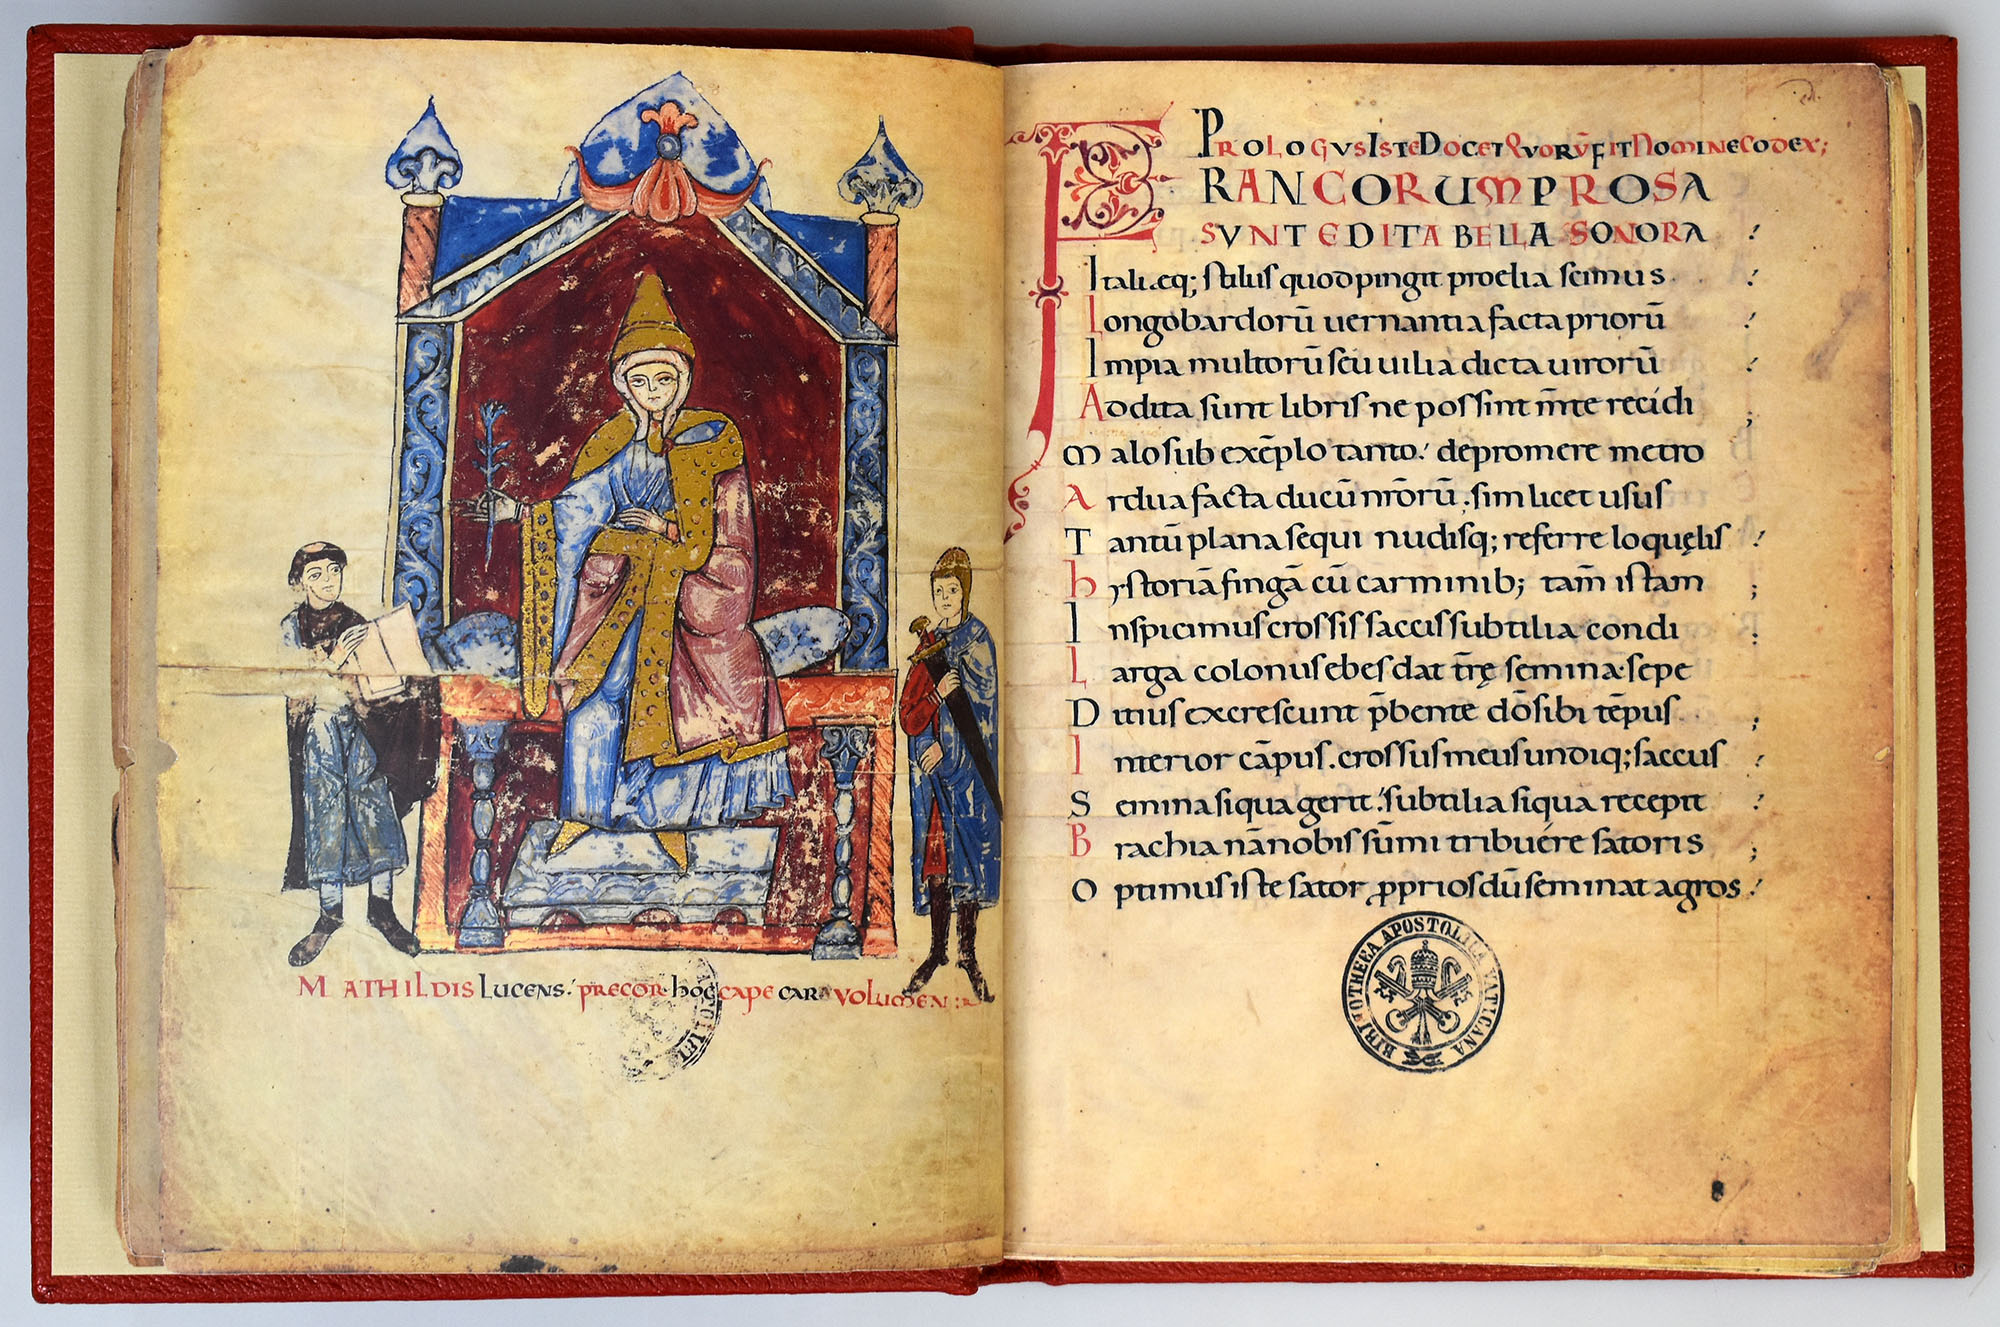 MATHILDIS LUCENS. PRECOR hOC CAPE CARA VOLUMEN:
PROLOGUS ISTE DOCET QUORŪ FIT NOMINE CODEX;
FRANCORUM PROSA
SUNT EDITA BELLA SONORA
Itali.eq; stilus quod pingit proelia scimus
Longobardorū uernantia facta priorū
Impia multorū seu uilia dicta uirorū
Addita sunt libris ne possint m̄te recidi
Malo sub exēplo tanto. depromere metro
Ardua facta ducū nr̄orū; sim licet usus
Tantū plana sequi nudisq; referre loquęlis
hystoriā fingā cū carminib; tam̄ istam
Inspicimus crossis saccis subtilia condi
Larga colonus ebes dat tr̄ę semina sepe
Ditius excrescunt p̄bente dō sibi tēpus
Interior cāpus. crossus meus undiq; saccus
Semina siqua gerit. subtilia siqua recepit
Brachia nā nobis sūmi tribuére satoris
Optimus iste sator ꝓprios dū seminat agros
BIBLIOTHECA APOSTOLICA VATICANA